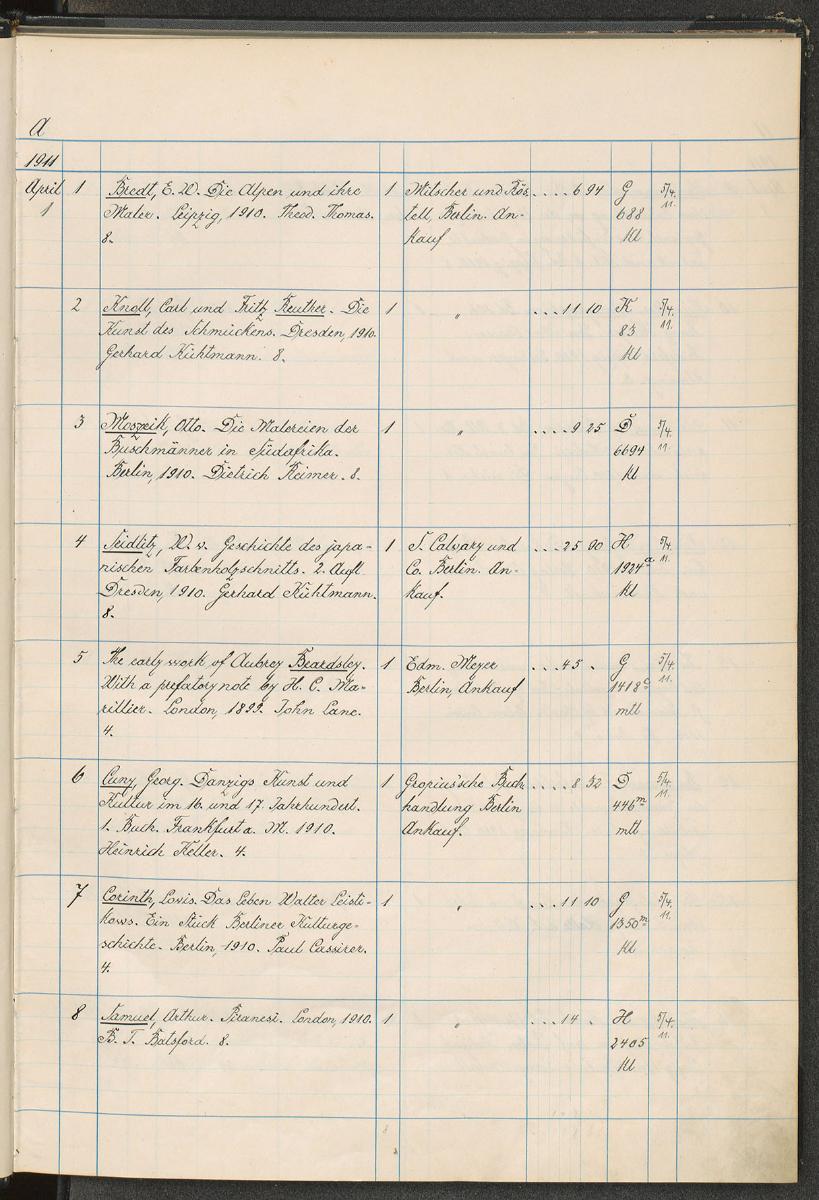 A
1911
April 1 1 Bredt, E. W. Die Alpen und ihre 1 Mitscher und Rös- .... 6 94 G 5/4.
1 Maler. Leipzig, 1910. Theod. Thomas. tell, Berlin. An- 688 11.
8. kauf Kl
2 Knoll, Carl und Fritz Reuther. Die 1 " ... 11 10 K 5/4.
Kunst des Schmückens. Dresden, 1910. 83 11.
Gerhard Kühtmann. 8. Kl
3 Moszeik, Otto. Die Malereien der 1 " .... 9 25 D 5/4.
Buschmänner in Südafrika. 6694 11.
Berlin, 1910. Dietrich Reimer. 8. Kl
4 Seidlitz, W. v. Geschichte des japa- 1 S. Calvary und ... 25 90 H 5/4.
nischen Farbenholzschnitts. 2. Aufl Co. Berlin. An- 1924a 11.
Dresden, 1910. Gerhard Kühtmann. kauf. Kl
8.
5 The early work of Aubrey Beardsley. 1 Edm. Meyer ... 45 . G 5/4.
With a prefatory note by H. C. Ma- Berlin, Ankauf 1418c 11.
rillier. London, 1899. John Lane. mtl
4.
6 Cuny, Georg. Danzigs Kunst und 1 Gropius'sche Buch- .... 8 32 D 5/4.
Kultur im 16. und 17. Jahrhundert. handlung Berlin 446m 11.
1. Buch. Frankfurt a. M. 1910. Ankauf. mtl
Heinrich Keller. 4.
7 Corinth, Lovis. Das Leben Walter Leisti- 1 " ... 11 10 G 5/4.
kows. Ein Stück Berliner Kulturge- 1350m 11.
schichte. Berlin, 1910. Paul Cassirer. Kl
4.
8 Samuel, Arthur. Piranesi. London, 1910. 1 " ... 14 . H 5/4.
B. T. Batsford. 8. 2405 11.
Kl